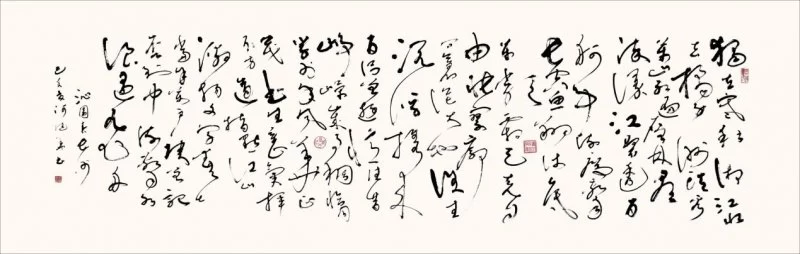 独立寒秋湘江北
去橘子洲头看
万山红遍层林尽
染漫江碧透百
舸争流鹰击
长空鱼翔浅底
万类霜天竞自
由怅寥廓
问苍茫大地谁主
沉浮携来
百侣曾游忆往昔
峥嵘岁月稠恰同
学少年风华正
茂书生意气挥
斥方遒指点江山
激扬文字粪土
当年万户侯曾记
否到中流击水
浪遏飞舟
沁园春长沙